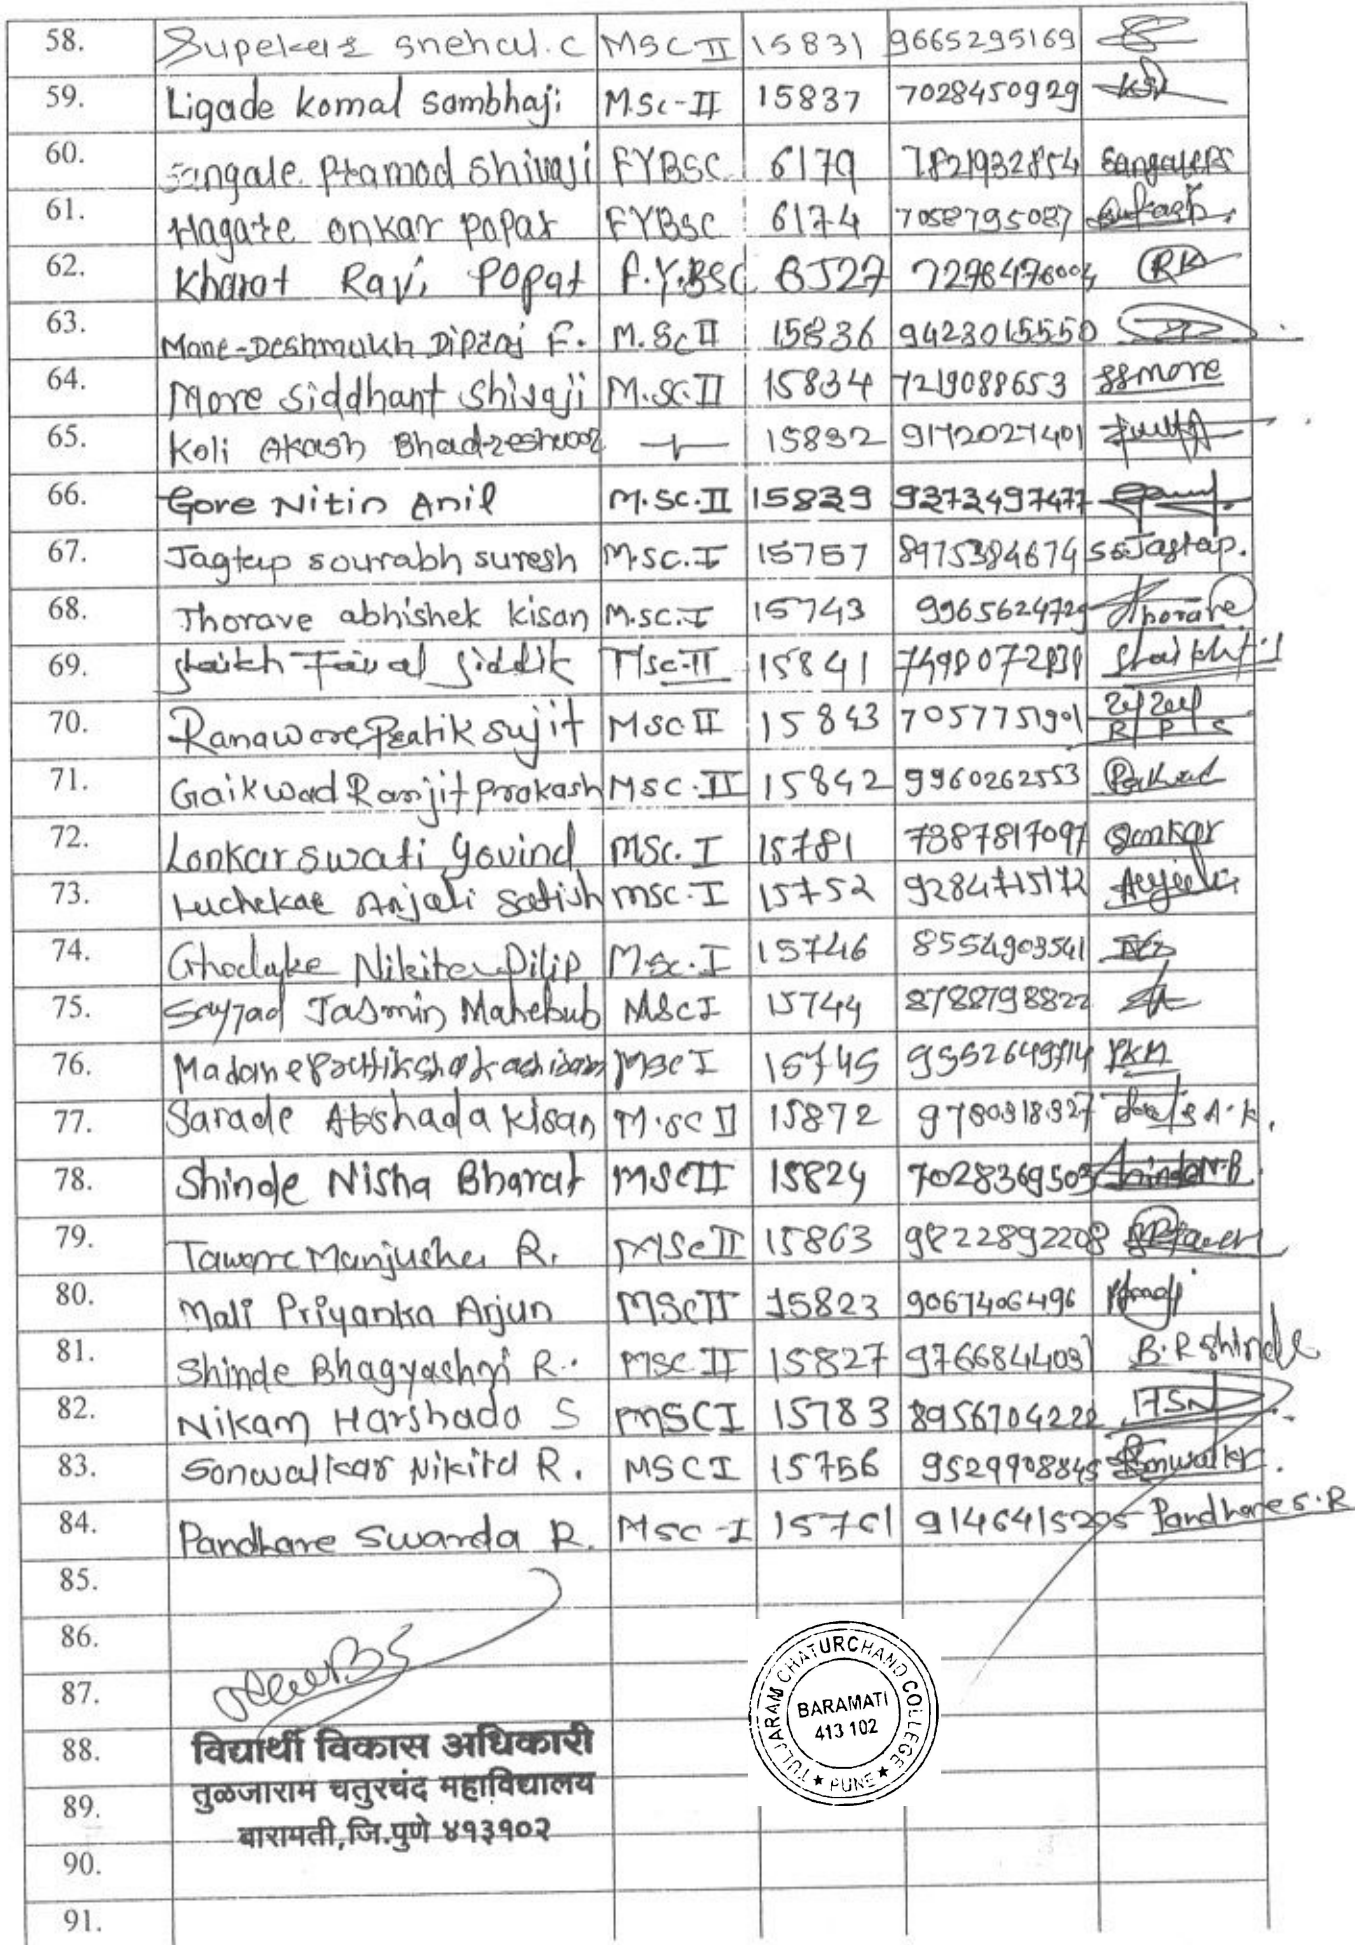 58. Supekar Snehal. C MSC II 15831 9665295169
59. Ligade Komal Sambhaji M.Sc-II 15837 7028450929 KSL
60. Pramod Shivaji FYBSC 6179 7821932854
61. Hagare Onkar Popat FYBSC 6174 7058795087
62. Kharat Ravi Popat F.Y.BSC 6527 RK
63. Mane-Deshmukh Dipraj F. M.Sc II 15836 9423015550
64. More Siddhant Shivaji M.Sc.II 15834 7219088653 SSmore
65. Koli Akash 15832 9172027401
66. Gore Nitin Anil M.Sc.II 15839 9373497477
67. Jagtap sourabh suresh M.SC.I 15757 8975384674 S.S.Jagtap.
68. Thorave abhishek kisan M.SC.I 15743 Thorave
69. Shaikh Faisal Siddik MSc-II 15841
70. Ranaware Pratik Sujit MSC II 15843 7057751901 R P S
71. Gaikwad Ranjit Prakash MSC.II 15842 9960262553
72. Lonkar Swati Govind MSc.I 15781 7387817097 Lonkar
73. Anjali Satish MSC.I 15752 9284715172
74. Ghodake Nikita Dilip M.Sc.I 15746 8554903541
75. Sayyad Jasmin Mahebub MSCI 15744 8788798822
76. Madane MSC I 15745 PKM
77. Sarade Akshada Kisan M.SC II 15872 9780318327 A.K.
78. Shinde Nisha Bharat MSCII 15824 7028369503 Shinde N.B
79. Taware Manjusha R. MSc II 15863 9822892208
80. Mali Priyanka Arjun MSCII 15823 9067406496
81. Shinde Bhagyashri R. MSC.II 15827 B.R Shinde
82. Nikam Harshada S MSCI 15783 8956704222 HSN
83. Sonwalkar Nikita R. MSCI 15756 9529908845
84. Pandhare Swarda R. MSC-I 15761 Pandhare S.R
85.
86.
87.
TULJARAM CHATURCHAND COLLEGE
BARAMATI
413 102
★ PUNE ★
88. विद्यार्थी विकास अधिकारी
89. तुळजाराम चतुरचंद महाविद्यालय
बारामती,जि.पुणे ४१३१०२
90.
91.